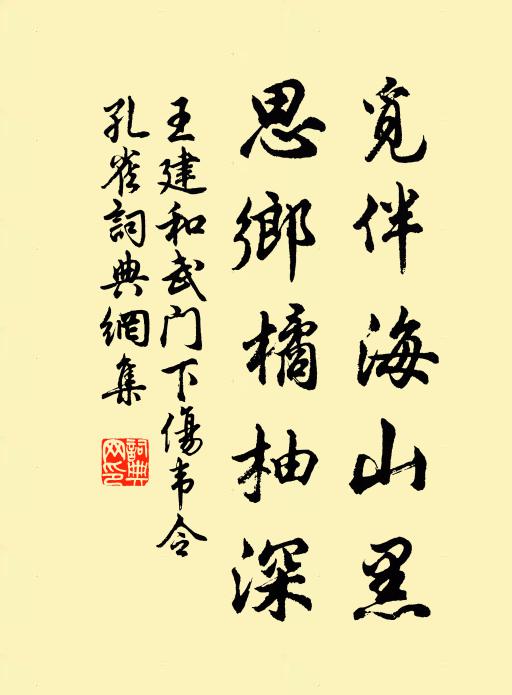 覓伴海山黑
思鄉橘柚深
王建和武门下傷韦令
孔雀詞典網集
詞典网印